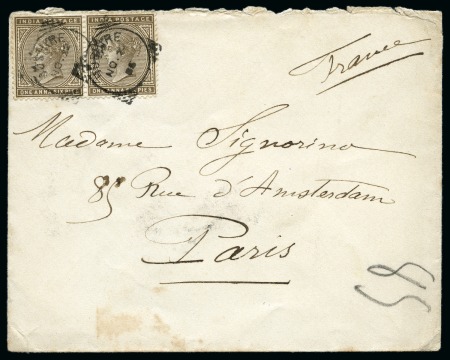 INDIA POSTAGE INDIA POSTAGE
BUSHIRE
NO
ONE ANNA SIX PIES ONE ANNA SIX PIES
France
Madame Signorino
85 Rue d'Amsterdam
Paris